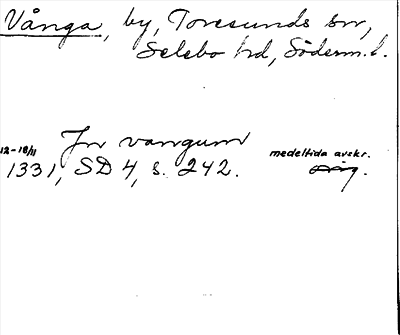 Vånga, by, Toresunds sn,
Selebo hd, Söderm. l.
Jn vangum
12-18/11 medeltida avskr.
1331, SD 4, s. 242.